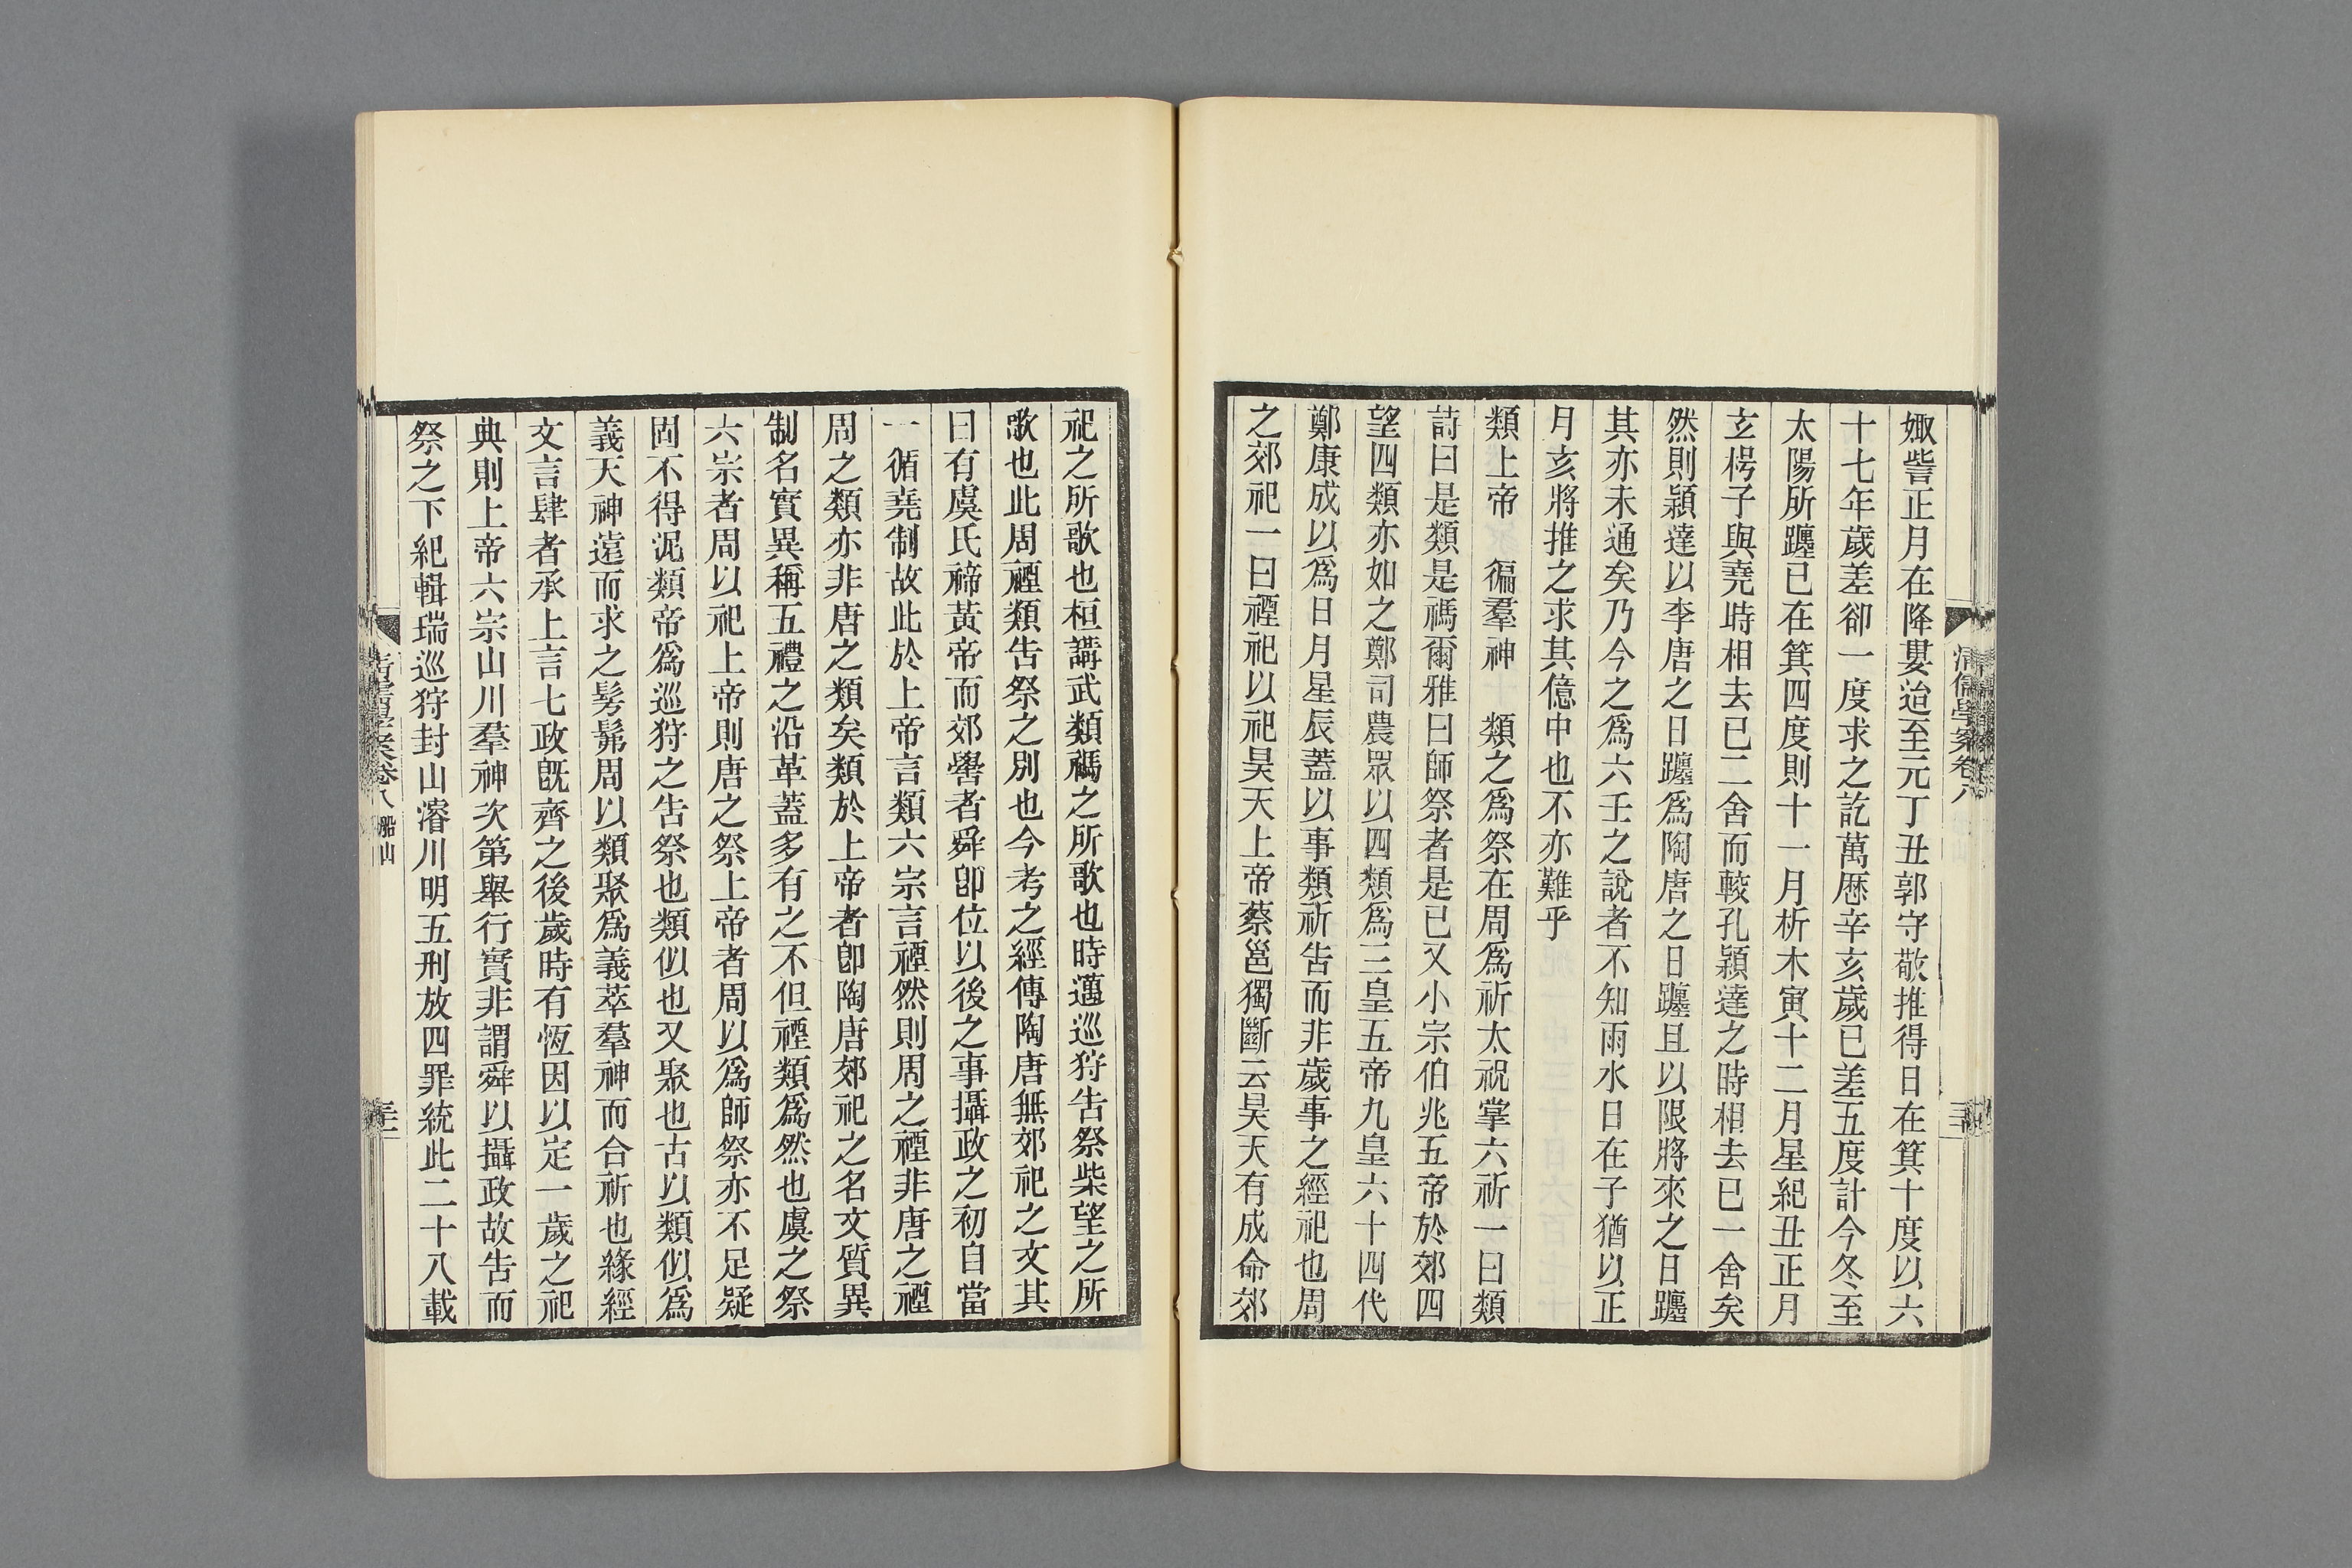 娵訾正月在降婁迨至元丁丑郭守敬推得日在箕十度以六
十七年歲差卻一度求之訖萬厯辛亥歲已差五度計今冬至
太陽所躔已在箕四度則十一月析木寅十二月星紀丑正月
玄枵子與堯時相去已二舍而較孔穎達之時相去已一舍矣
然則穎達以李唐之日躔爲陶唐之日躔且以限將來之日躔
其亦未通矣乃今之爲六壬之說者不知雨水日在子猶以正
月亥將推之求其億中也不亦難乎
類上帝　徧羣神　類之爲祭在周爲祈太祝掌六祈一曰類
詩曰是類是禡爾雅曰師祭者是已又小宗伯兆五帝於郊四
望四類亦如之鄭司農眾以四類爲三皇五帝九皇六十四代
鄭康成以爲日月星辰蓋以事類祈告而非歲事之經祀也周
之郊祀一曰禋祀以祀昊天上帝蔡邕獨斷云昊天有成命郊
清儒學案卷八
祀之所歌也桓講武類禡之所歌也時邁巡狩告祭柴望之所
歌也此周禋類告祭之別也今考之經傳陶唐無郊祀之文其
曰有虞氏禘黃帝而郊嚳者舜卽位以後之事攝政之初自當
一循堯制故此於上帝言類六宗言禋然則周之禋非唐之禋
周之類亦非唐之類矣類於上帝者卽陶唐郊祀之名文質異
制名實異稱五禮之沿革蓋多有之不但禋類爲然也虞之祭
六宗者周以祀上帝則唐之祭上帝者周以爲師祭亦不足疑
固不得泥類帝爲巡狩之告祭也類似也又聚也古以類似爲
義天神遠而求之髣髴周以類聚爲義萃羣神而合祈也緣經
文言肆者承上言七政旣齊之後歲時有恆因以定一歲之祀
典則上帝六宗山川羣神次第舉行實非謂舜以攝政故告而
祭之下紀輯瑞巡狩封山濬川明五刑放四罪統此二十八載
清儒學案卷八 船山